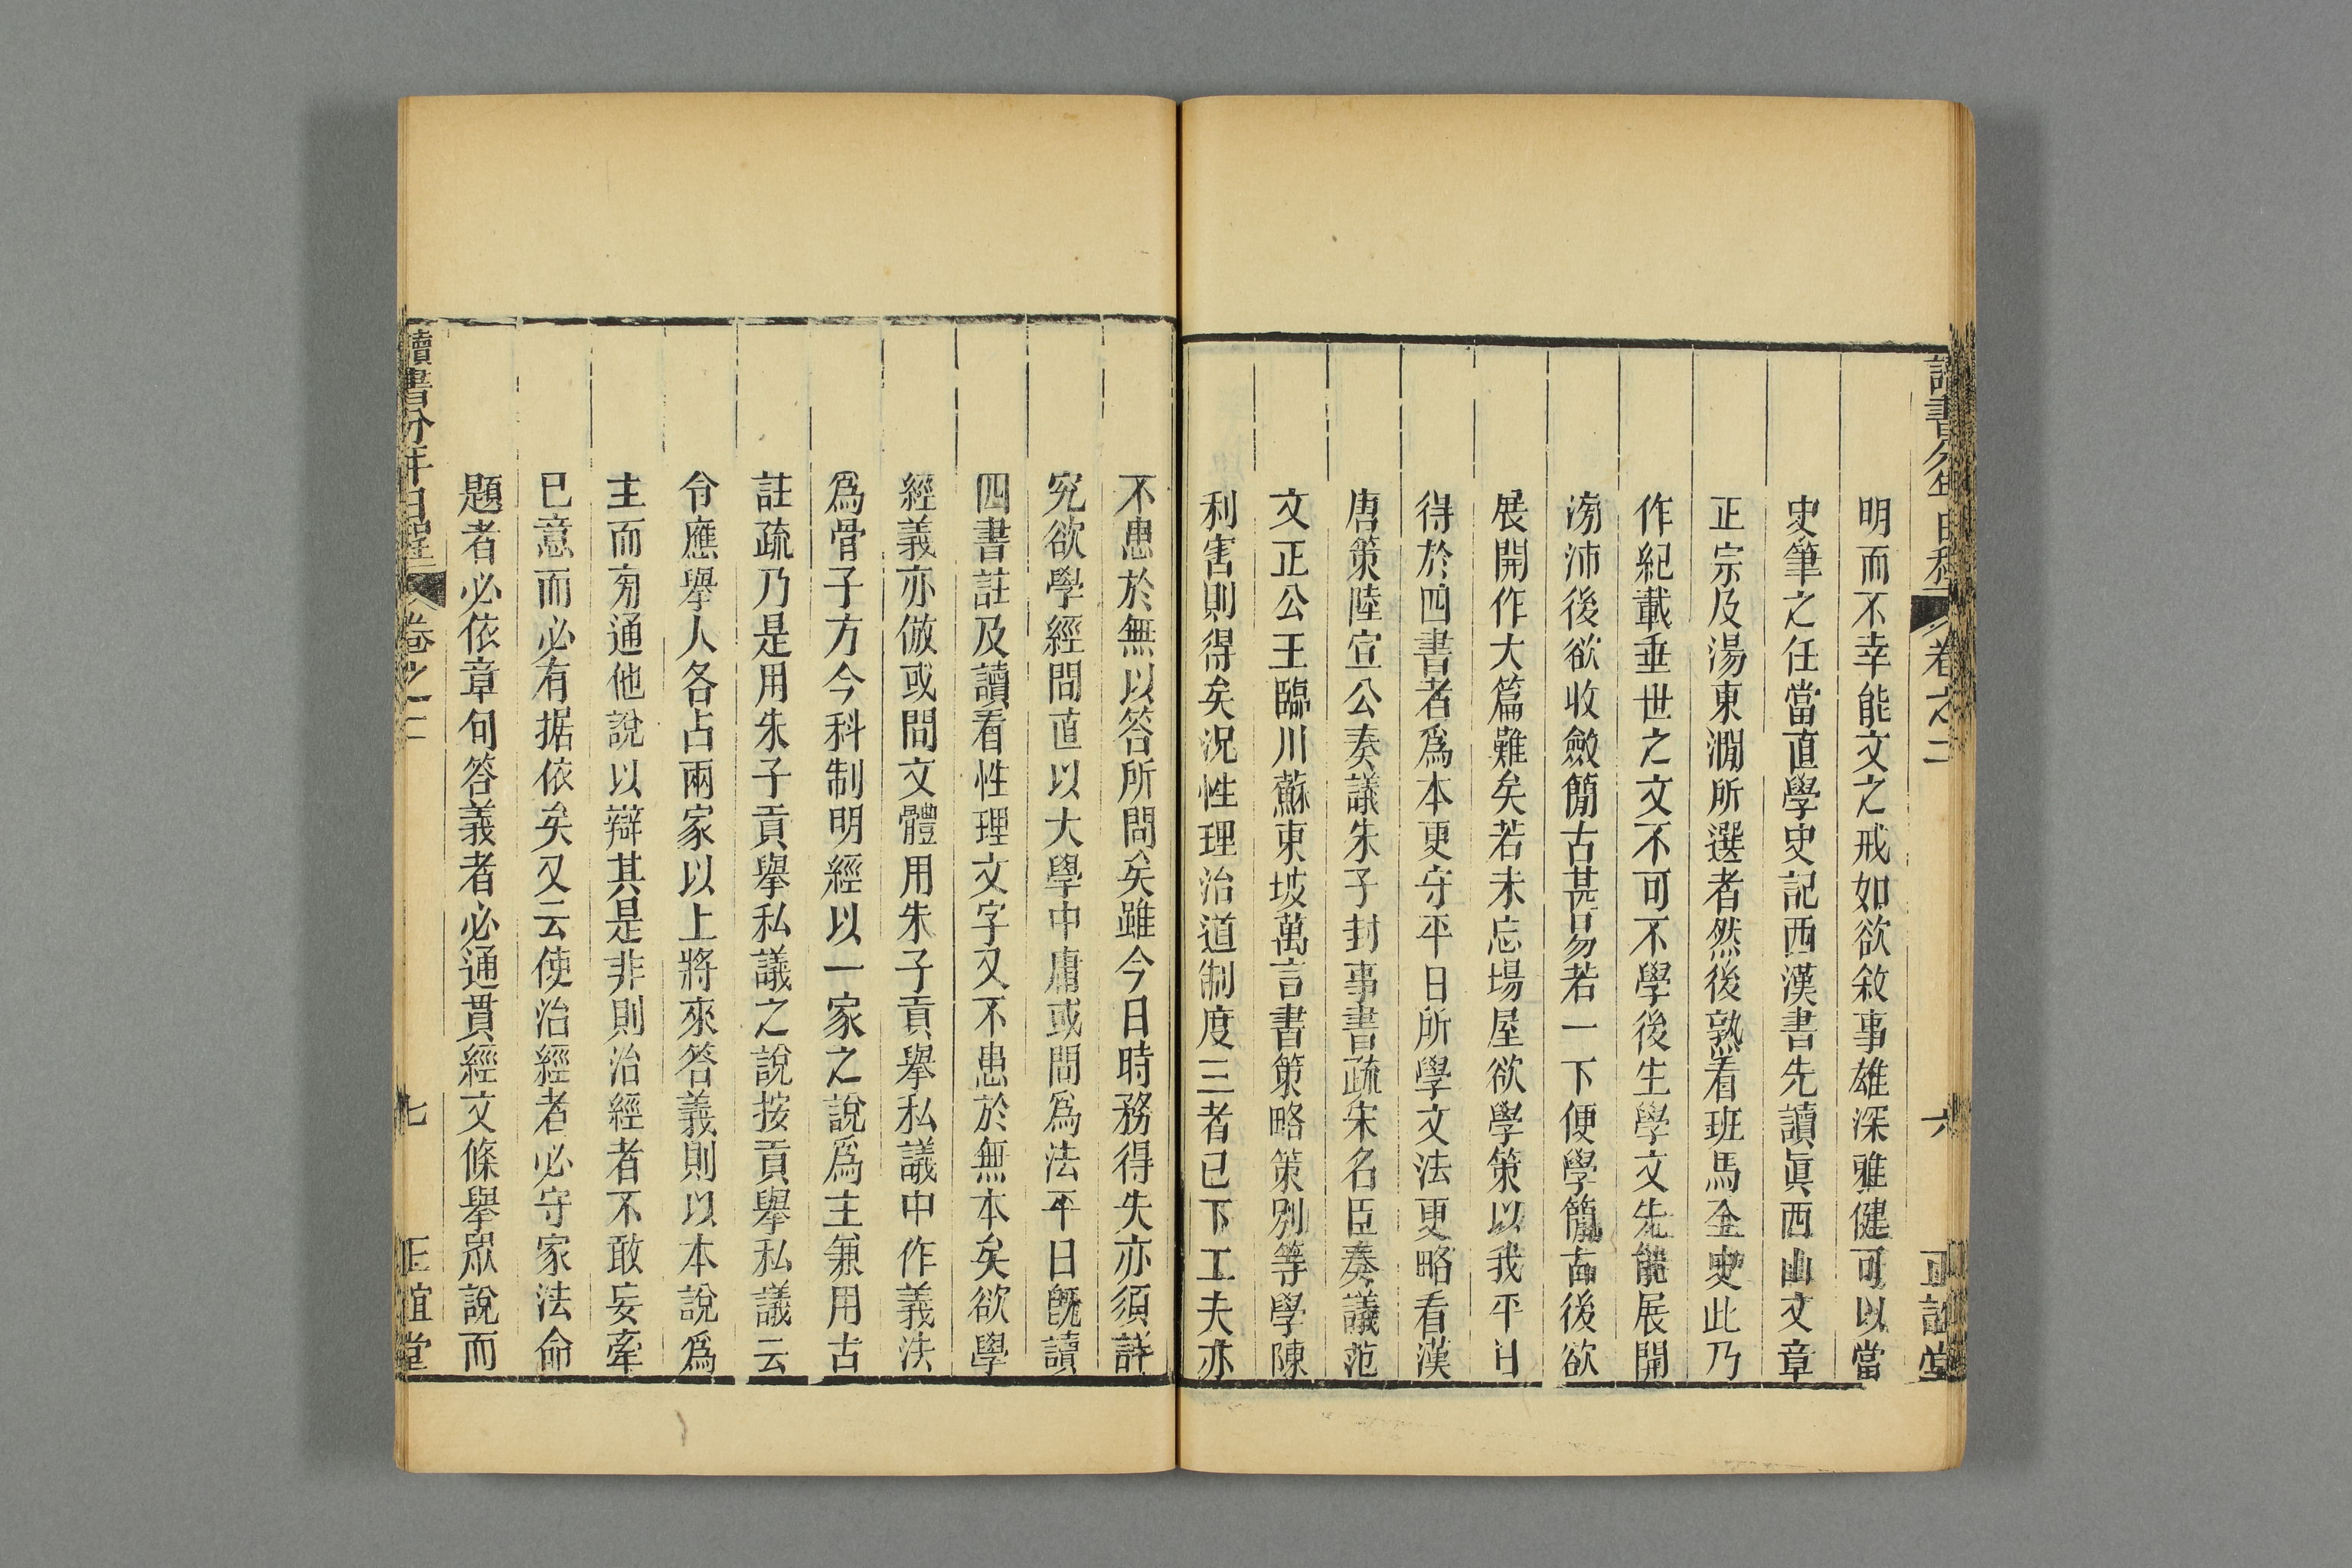 讀書分年日程 卷之二 六 正誼堂
明而不幸能文之戒如欲敘事雄深雅健可以當
史筆之任當直學史記西漢書先讀眞西山文章
正宗及湯東澗所選者然後熟看班馬全史此乃
作紀載垂世之文不可不學後生學文先能展開
滂沛後欲收斂簡古甚易若一下便學簡古後欲
展開作大篇難矣若未忘場屋欲學策以我平日
得於四書者爲本更守平日所學文法更略看漢
唐策陸宣公奏議朱子封事書疏宋名臣奏議范
文正公王臨川蘇東坡萬言書策略策別等學陳
利害則得矣況性理治道制度三者已下工夫亦
不患於無以答所問矣雖今日時務得失亦須詳
究欲學經問直以大學中庸或問爲法平日旣讀
四書註及讀看性理文字又不患於無本矣欲學
經義亦倣或問文體用朱子貢舉私議中作義法
爲骨子方今科制明經以一家之說爲主兼用古
註疏乃是用朱子貢舉私議之說按貢舉私議云
令應舉人各占兩家以上將來答義則以本說爲
主而旁通他說以辯其是非則治經者不敢妄牽
已意而必有据依矣又云使治經者必守家法命
題者必依章句答義者必通貫經文條舉眾說而
讀書分年日程 卷之二 七 正誼堂